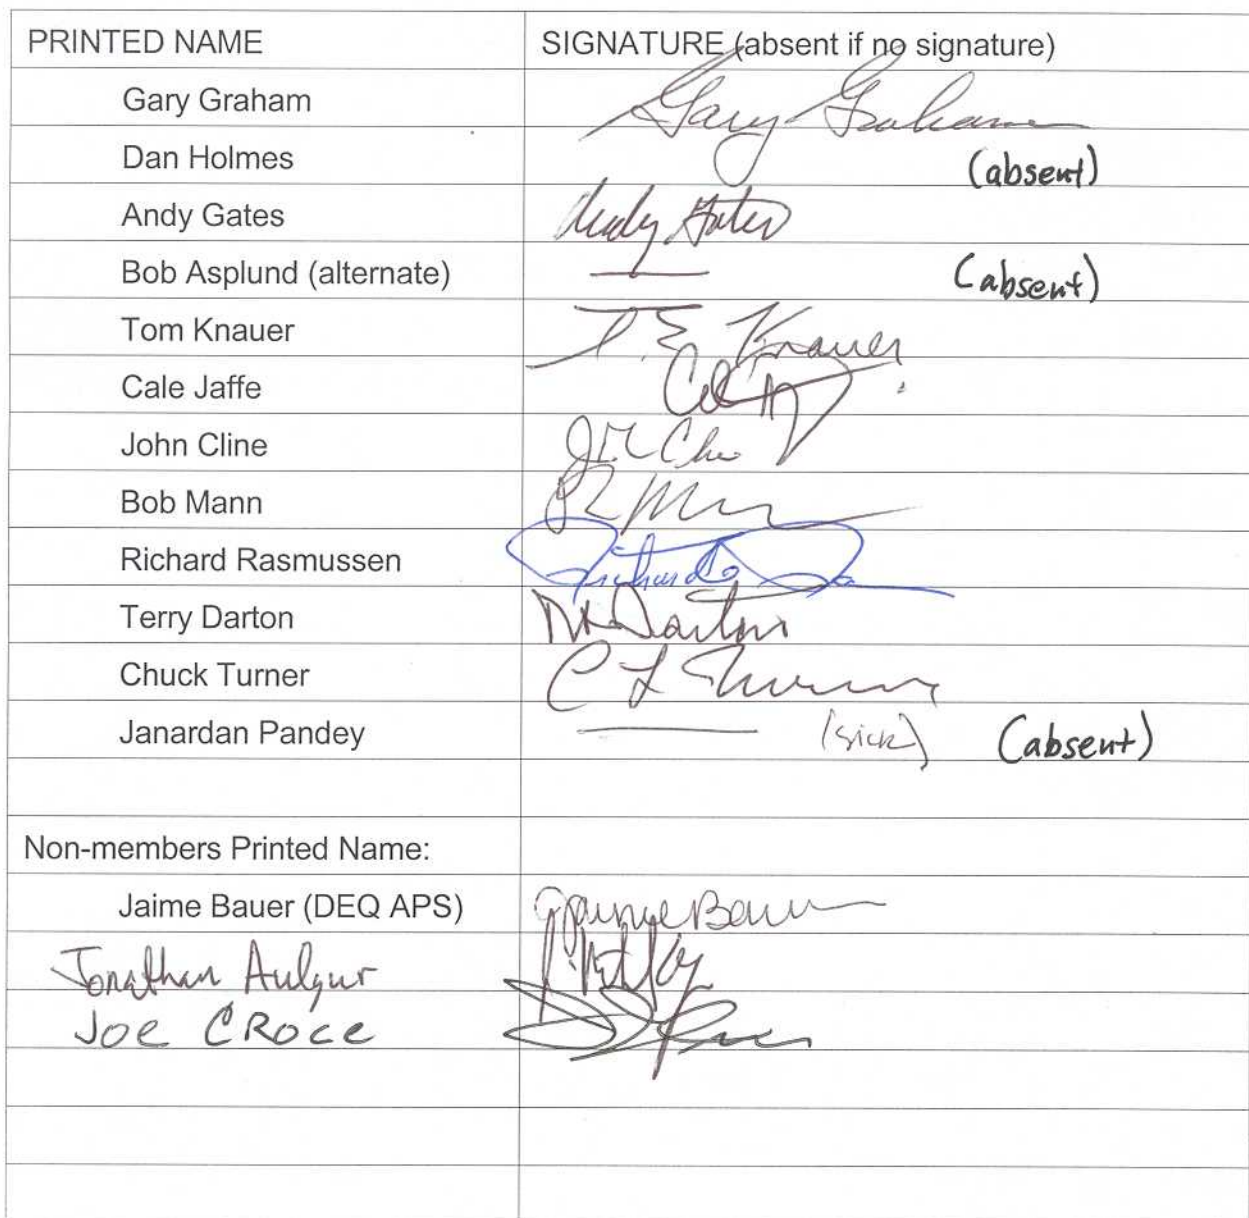 PRINTED NAME SIGNATURE (absent if no signature)
Gary Graham Gary Graham
Dan Holmes (absent)
Andy Gates Andy Gates
Bob Asplund (alternate) (absent)
Tom Knauer T. E Knauer
Cale Jaffe
John Cline
Bob Mann
Richard Rasmussen Richard
Terry Darton Darton
Chuck Turner C L Turner
Janardan Pandey (sick) (absent)
Non-members Printed Name:
Jaime Bauer (DEQ APS) Jaime Bauer
Jonathan Aulgur
Joe CROCE